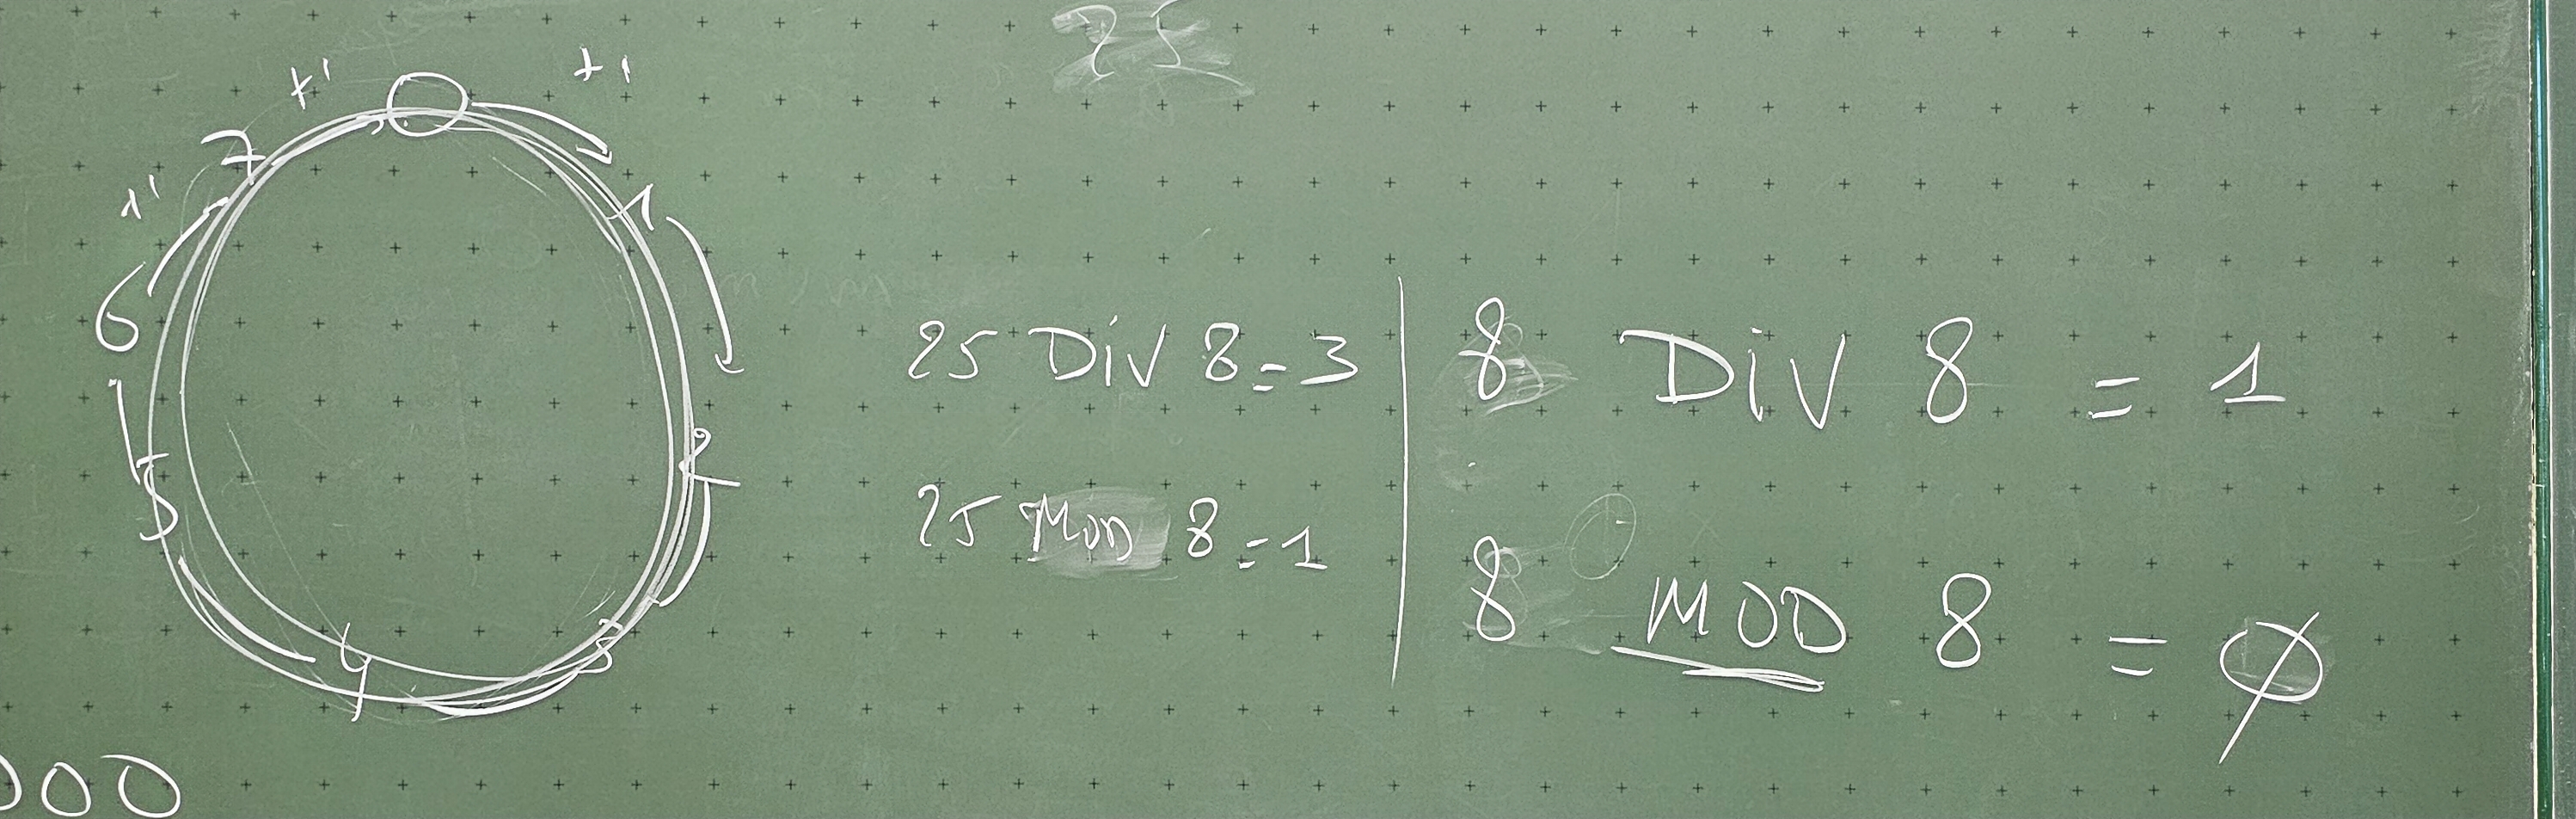 25
+1 +1
0
7 1
+1
6
2
5
3
4
25 Div 8 = 3
25 MOD 8 = 1
8 Div 8 = 1
8 MOD 8 = Ø
000